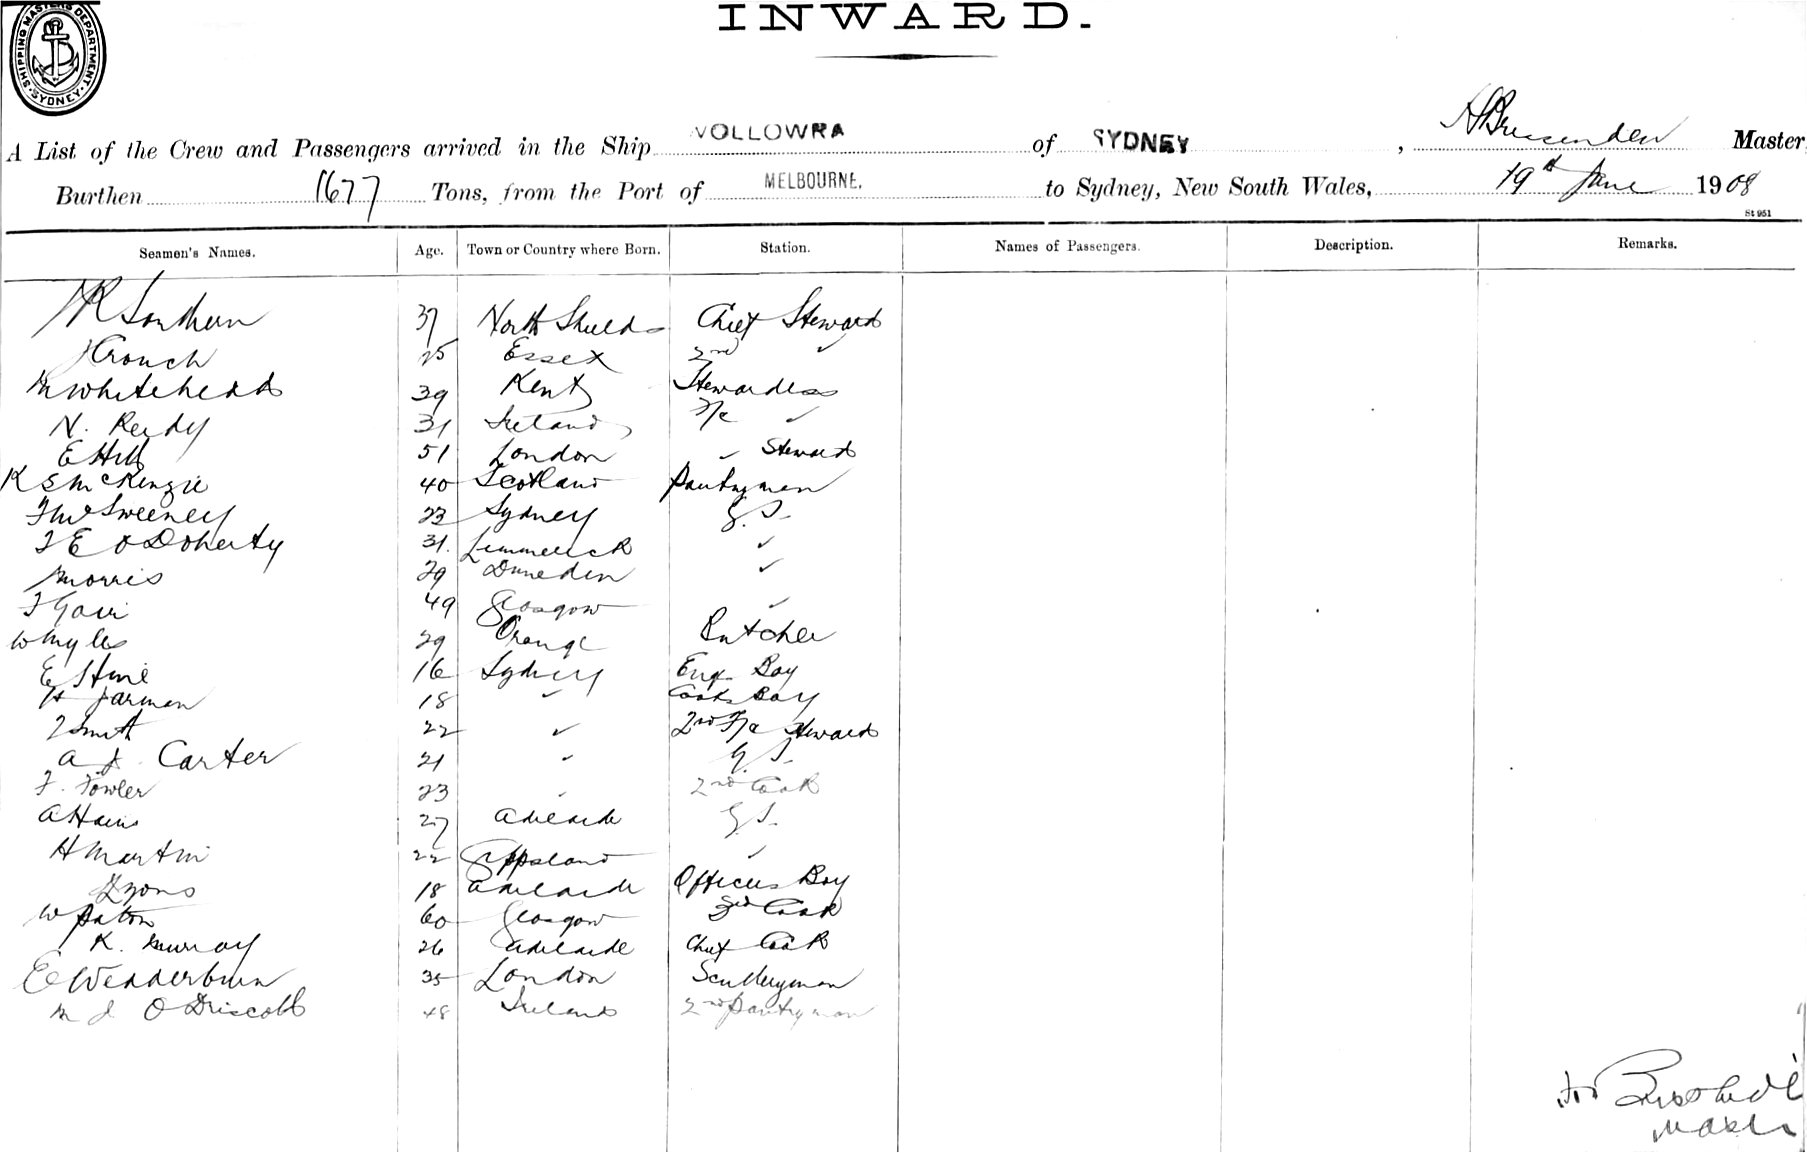 INWARD.
SHIPPING MASTERS DEPARTMENT. SYDNEY.
A List of the Crew and Passengers arrived in the Ship WOLLOWRA of SYDNEY, Master
Burthen 1677 Tons, from the Port of MELBOURNE. to Sydney, New South Wales, 19th June 1908
St 951
Seamen's Names. Age. Town or Country where Born. Station. Names of Passengers. Description. Remarks.
37 North Shields Chief Steward
J Crouch 25 Essex 2nd ✓
M Whitehead 39 Kent Stewardess
N. Reidy 31 Ireland F/c ✓
E Hill 51 London ✓ Steward
K S McKenzie 40 Scotland Pantryman
McSweeney 23 Sydney G.S.
J E O Doherty 31. Limmerick ✓
Morris 29 Dunedin ✓
49 Glasgow ✓
W Myles 29 Orange Butcher
E 16 Sydney Eng Boy
H Jarman 18 ✓ Cooks Boy
J Smith 22 ✓ 2nd F/c Steward
A J. Carter 21 ✓ G.S.
F. Fowler 23 ✓ 2nd Cook
A 27 Adelaide G.S.
H Martin 22 Gippsland ✓
Lyons 18 Adelaide Officers Boy
W Paton 60 Glasgow 3rd Cook
K. Murray 26 Adelaide Chief Cook
E Wedderburn 35 London Sculleryman
M J O Driscoll 48 Ireland 2nd Pantryman
for
Master